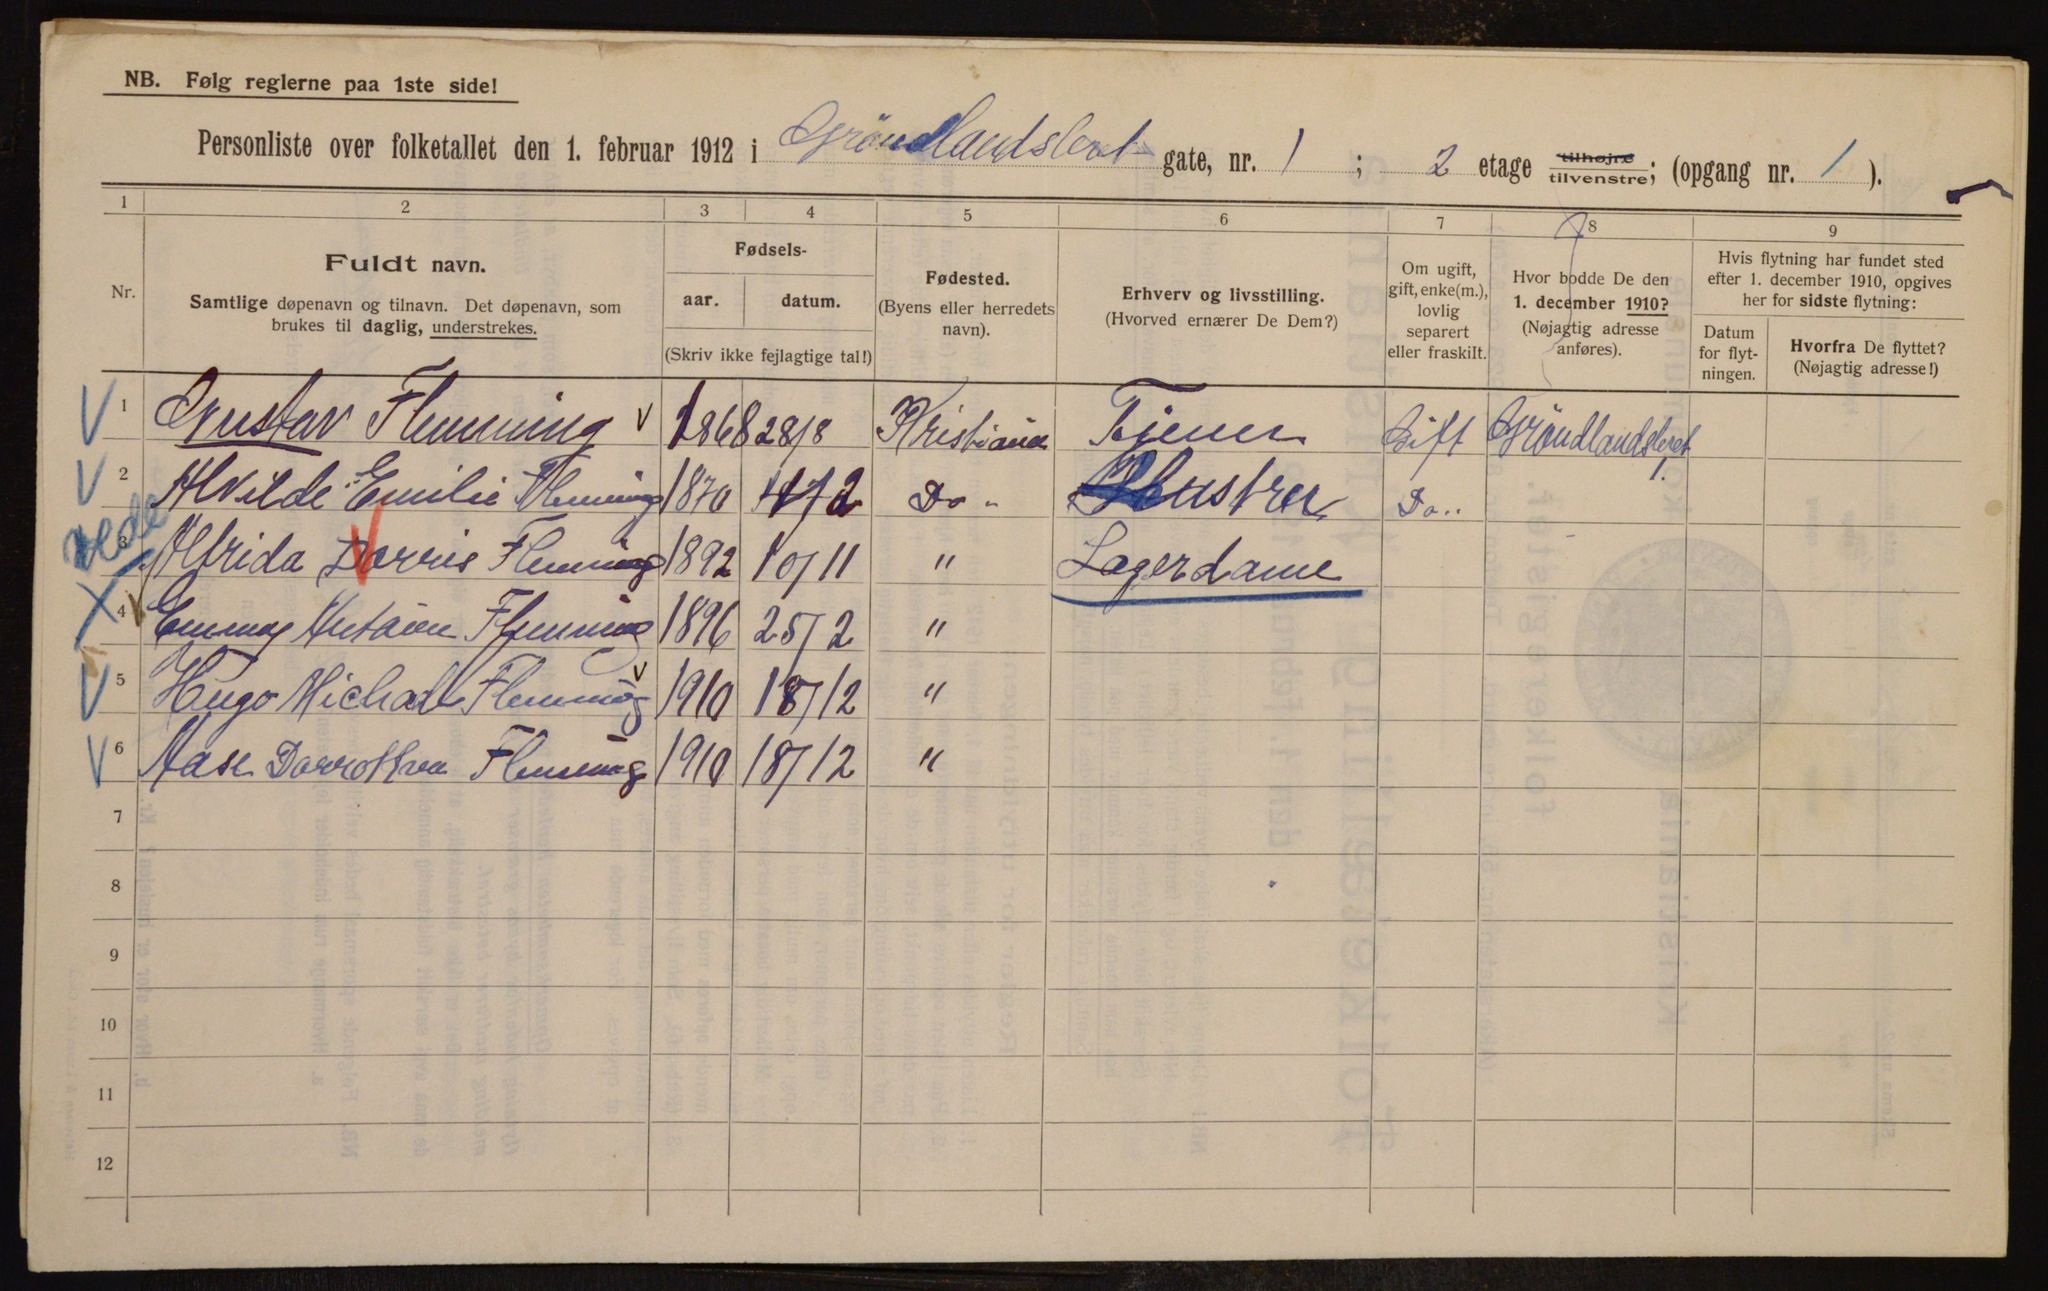 NB. Følg reglerne paa 1ste side!
Personliste over folketallet den 1. februar 1912 i Grøndlandsleret gate, nr. 1 ; 2 etage tilhøjre tilvenstre; (opgang nr. 1 ).
1 2 3 4 5 6 7 8 9
Nr.
Fuldt navn.
Samtlige døpenavn og tilnavn. Det døpenavn, som
brukes til daglig, understrekes.
Fødsels-
aar. datum.
(Skriv ikke fejlagtige tal!)
Fødested.
(Byens eller herredets
navn).
Erhverv og livsstilling.
(Hvorved ernærer De Dem?)
Om ugift,
gift, enke(m.),
lovlig
separert
eller fraskilt.
Hvor bodde De den
1. december 1910?
(Nøjagtig adresse
anføres).
Hvis flytning har fundet sted
efter 1. december 1910, opgives
her for sidste flytning:
Datum
for flyt-
ningen.
Hvorfra De flyttet?
(Nøjagtig adresse!)
1 Gustav Flemming 1868 28/8 Kristiania Tjener Gift Grøndlandsleret
1.
2 Alvilde Emilie Flemming 1870 2 Do " Hustru Do..
3 Alfrida Dorris Flemming 1892 10/11 " Lagerdame
4 Emmy Flemming 1896 25/2 "
5 Hugo Michael Flemming 1910 18/12 "
6 Aase Dorrothea Flemming 1910 18/12 "
7
8
9
10
11
12